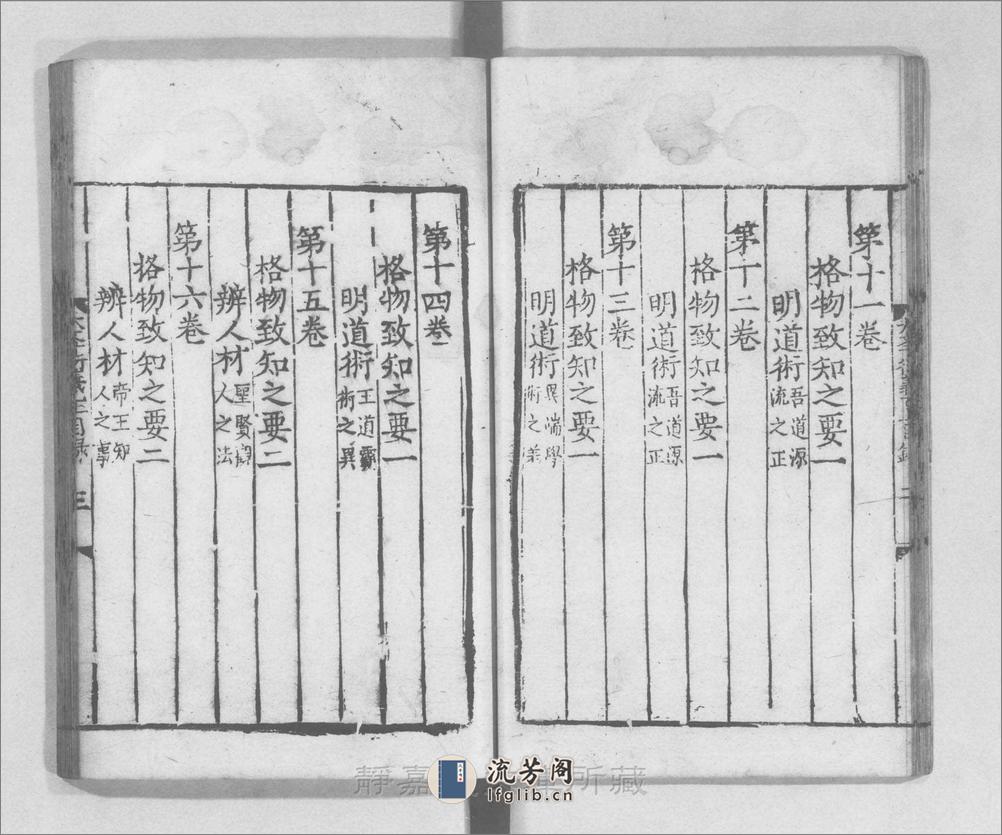 第十一卷
格物致知之要一
明道術吾道源流之正
第十二卷
格物致知之要一
明道術吾道源流之正
第十三卷
格物致知之要一
明道術異端學術之差
第十四卷
格物致知之要一
明道術王道霸術之異
第十五卷
格物致知之要二
辨人材聖賢觀人之法
第十六卷
格物致知之要二
辨人材帝王知人之事
三
靜嘉
所藏
流芳阁
lfglib.cn